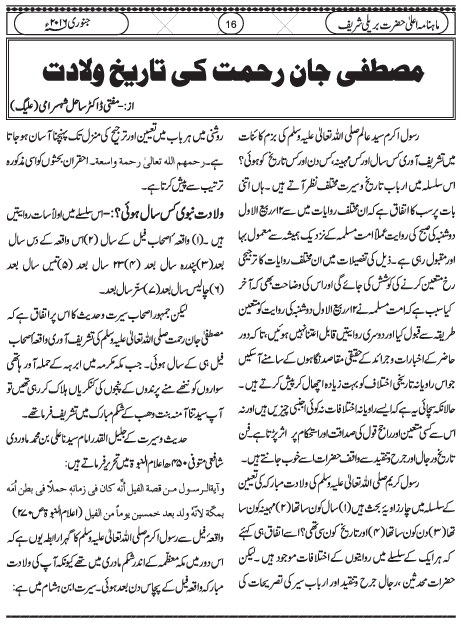 ماہنامہ اعلیٰ حضرت بریلی شریف
16
جنوری ۲۰۱۶ء
مصطفی جان رحمت کی تاریخ ولادت
از:- مفتی ڈاکٹر ساحل شہسرامی (علیگ)
رسول اکرم سید عالم صلی اللہ تعالیٰ علیہ وسلم کی بزم کائنات
میں تشریف آوری کس سال اور کس مہینہ، کس دن اور کس تاریخ کو ہوئی؟
اس سلسلہ میں ارباب تاریخ و سیرت مختلف نظر آتے ہیں۔ ہاں اتنی
بات پر سب کا اتفاق ہے کہ ان مختلف روایات میں سے ۱۲ ربیع الاول
دوشنبہ کی صبح کی روایت عملاً امت مسلمہ کے نزدیک ہمیشہ سے معمول بہا
اور مقبول رہی ہے۔ ذیل کی تفصیلات میں ان مختلف روایات کا ترجیحی
رخ متعین کرنے کی کوشش کی جائے گی اور اس کی وضاحت بھی کہ آخر
کیا سبب ہے کہ امت مسلمہ نے ۱۲ ربیع الاول دوشنبہ کی روایت کو متعین
طریقہ سے قبول کیا اور دوسری روایتیں قابل اعتنا نہیں ہوئیں، تاکہ دور
حاضر کے اخبارات و جرائد کے حقیقی مقاصد نگاہوں کے سامنے آسکیں
جو اس راویانہ تاریخی اختلاف کو بہت زیادہ اچھال کر پیش کرتے ہیں۔
حالانکہ سچائی یہ ہے کہ ایسے راویانہ اختلافات نہ کوئی اجنبی چیز ہیں اور نہ
اس سے کسی متعین اور راجح قول کی صداقت اور استحکام پر اثر پڑتا ہے۔ فن
تاریخ و رجال اور جرح و تنقید سے واقف حضرات اسے خوب جانتے ہیں۔
رسول کریم صلی اللہ تعالیٰ علیہ وسلم کی ولادت مبارکہ
کے سلسلہ میں چار زاویہ بحث ہیں (۱) سال کون سا تھا (۲) مہینہ کون سا
تھا (۳) دن کون سا تھا (۴) اور تاریخ کون سی تھی؟ اسے اتفاق ہی کہئے
کہ ہر ایک کے سلسلے میں روایتوں کے اختلافات موجود ہیں۔ لیکن
حضرات محدثین، رجال جرح و تنقید اور ارباب سیر کی تصریحات کی
روشنی میں ہر باب میں تعیین اور ترجیح کی منزل تک پہنچنا آسان ہو جاتا
ہے۔ رحمهم الله تعالىٰ رحمة واسعة۔ احقر ان بحثوں کو اسی مذکورہ
ترتیب سے پیش کرتا ہے۔
ولادت نبوی کس سال ہوئی؟:- اس سلسلے میں اولاً سات روایتیں
ہیں۔ (۱) واقعۂ اصحاب فیل کے سال (۲) اس واقعہ کے دس سال
بعد (۳) پندرہ سال بعد (۴) ۲۳ سال بعد (۵) تیس سال بعد
(۶) چالیس سال بعد (۷) ستر سال بعد۔
لیکن جمہور اصحاب سیرت و حدیث کا اس پر اتفاق ہے کہ
مصطفیٰ جان رحمت صلی اللہ تعالیٰ علیہ وسلم کی تشریف آوری واقعۂ اصحاب
فیل ہی کے سال ہوئی۔ جب مکہ مکرمہ میں ابرہہ کے حملہ آور ہاتھی
سواروں کو ننھے منے پرندوں کے پنجوں کی کنکریاں ہلاک کر رہی تھیں تو
آپ سیدتنا آمنہ بنت وھب کے شکم مبارک میں تشریف فرما تھے۔
حدیث و سیرت کے جلیل القدر امام سیدنا علی بن محمد ماوردی
شافعی متوفی ۴۵۰ھ اعلام النبوۃ میں تحریر فرماتے ہیں:
وآیۃ الرسول من قصة الفیل أنّه کان فی زمانه حملا فی بطن أمه
بمکة لانّه ولد بعد خمسین یوماً من الفیل (اعلام النبوۃ ص ۲۷۰)
واقعۂ فیل سے رسول اکرم صلی اللہ تعالیٰ علیہ وسلم کا گہرا رابطہ یوں ہے کہ
اس دور میں مکہ معظمہ کے اندر شکم مادری میں تھے کیونکہ آپ کی ولادت
مبارکہ واقعۂ فیل کے پچاس دن بعد ہوئی۔ سیرت ابن ہشام میں ہے: